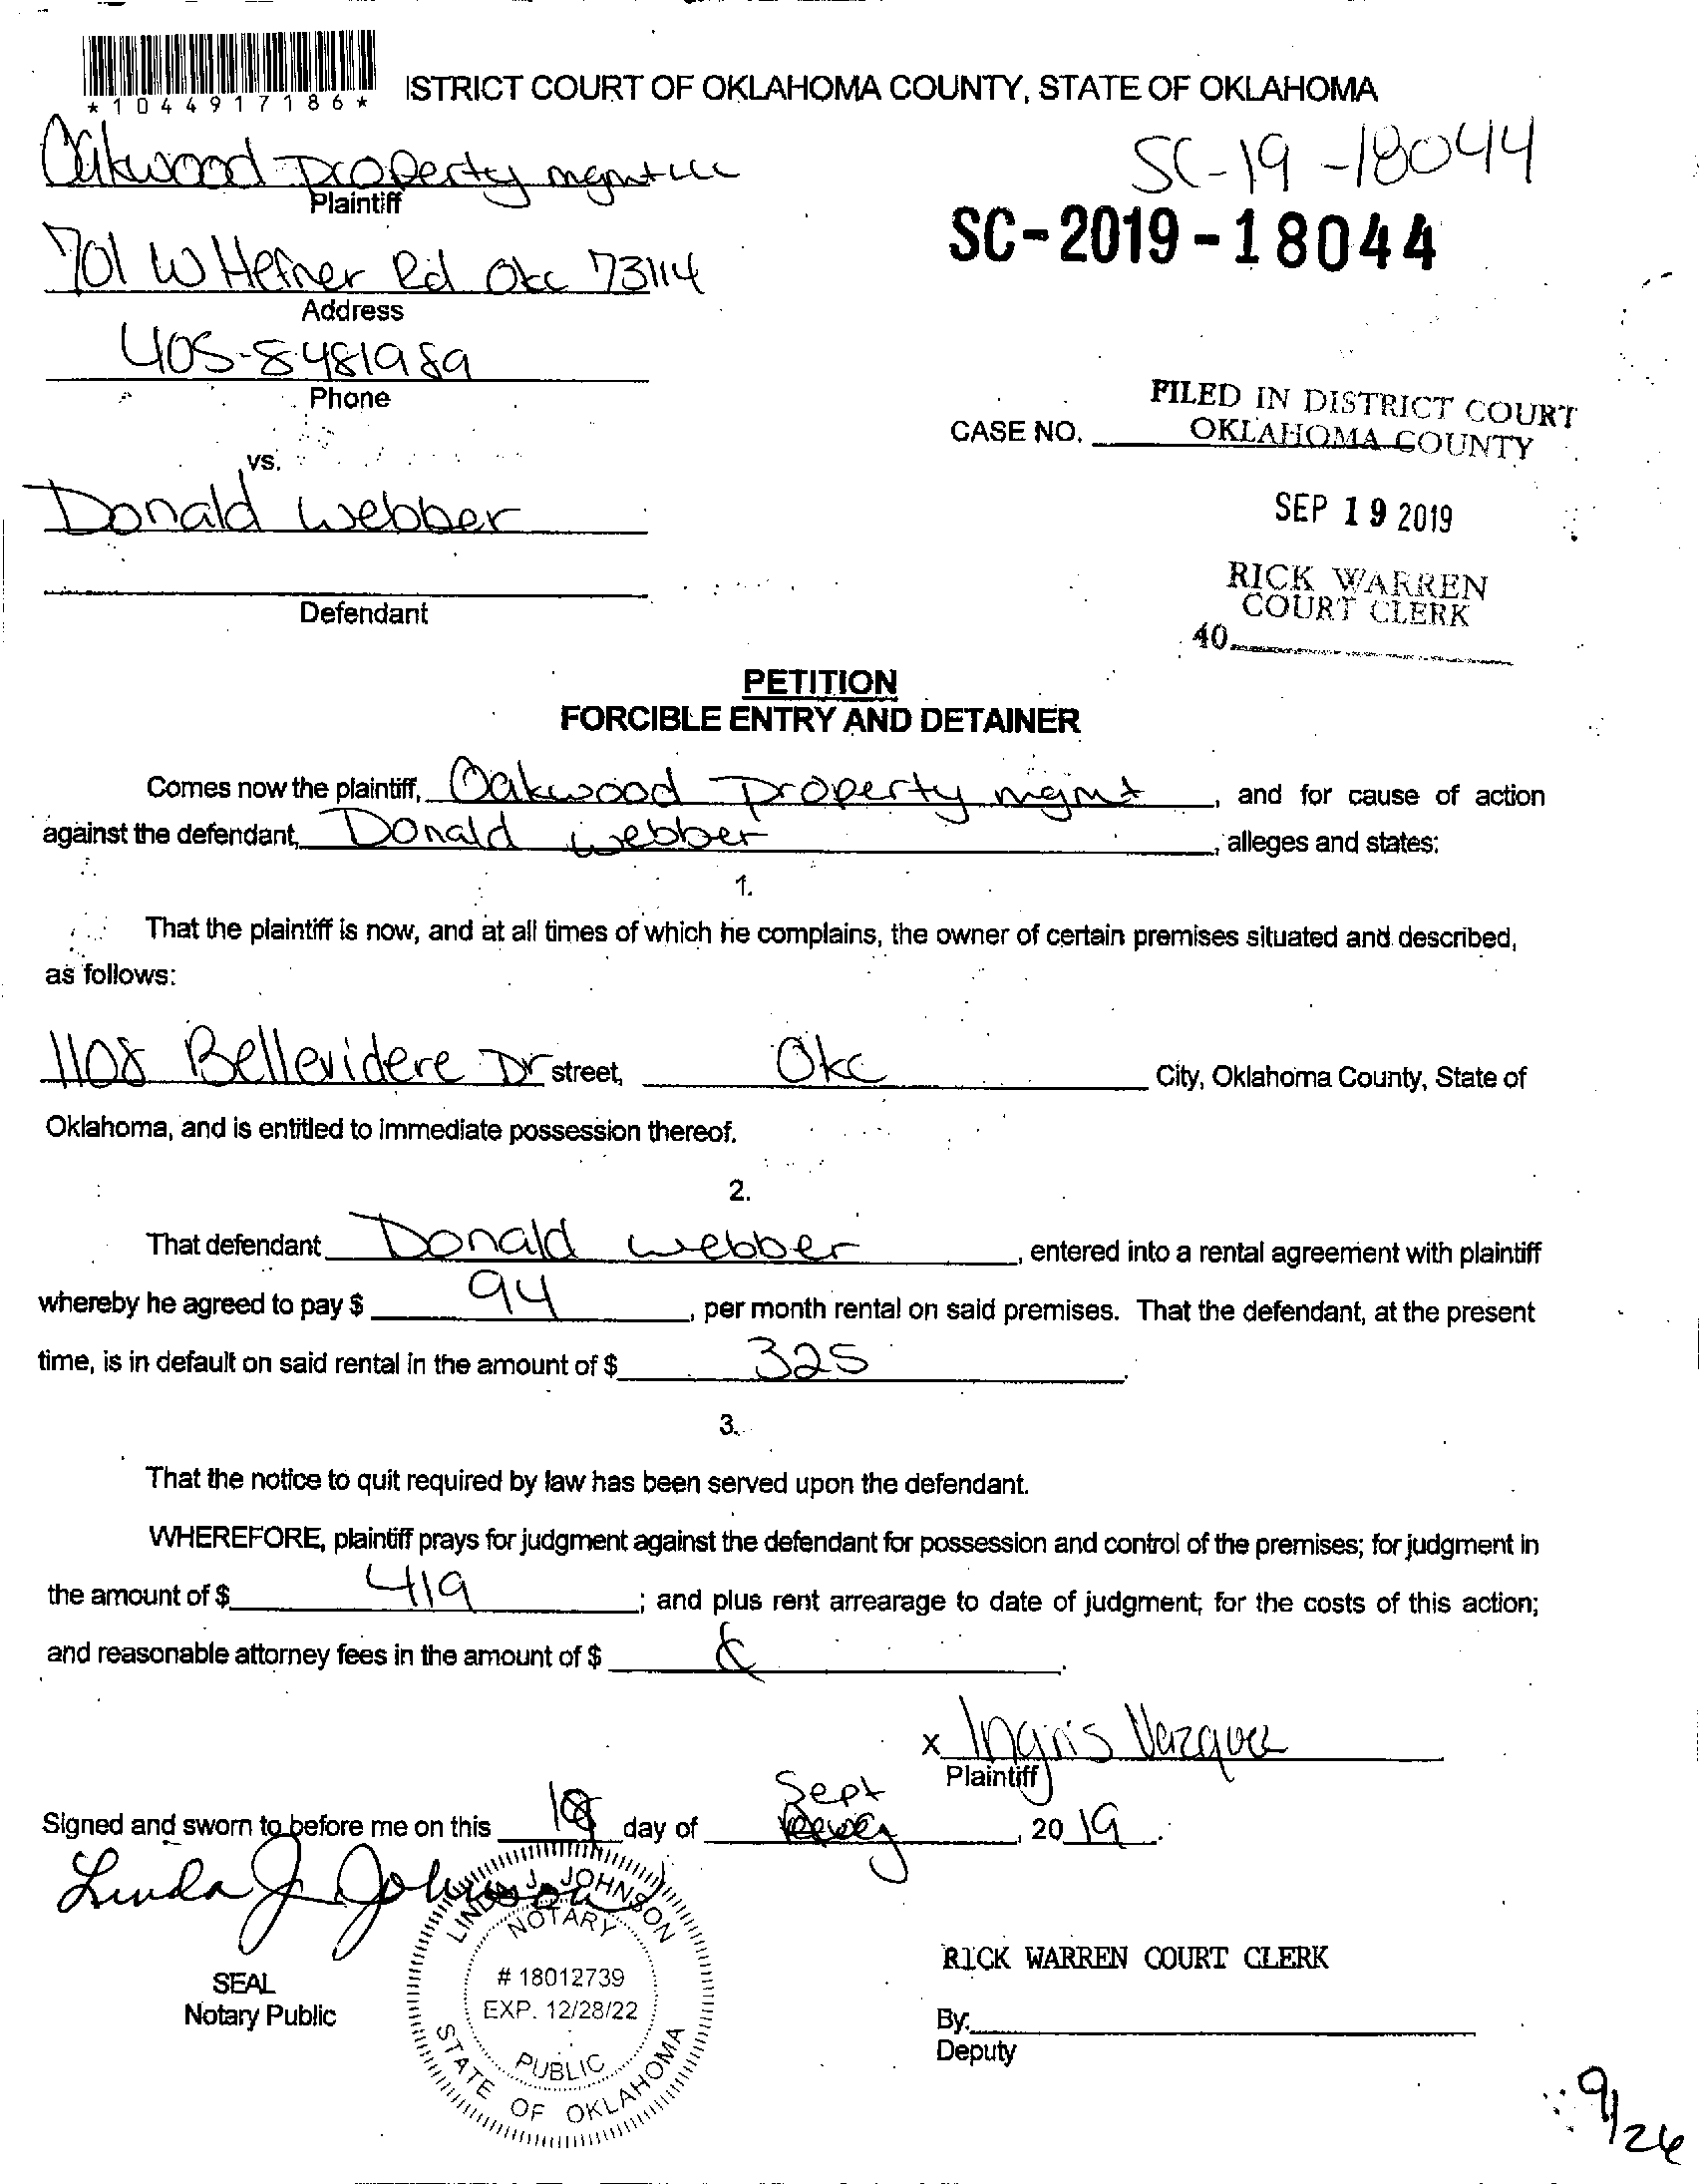 *1044917186*
ISTRICT COURT OF OKLAHOMA COUNTY, STATE OF OKLAHOMA
Oakwood Property mgmt LLC
Plaintiff
SC-19-18044
SC-2019-18044
701 W Hefner Rd Okc 73114
Address
405-8481989
Phone
FILED IN DISTRICT COURT
CASE NO. OKLAHOMA COUNTY
vs.
Donald Webber
SEP 19 2019
Defendant
RICK WARREN
COURT CLERK
40
PETITION
FORCIBLE ENTRY AND DETAINER
Comes now the plaintiff, Oakwood Property mgmt, and for cause of action
against the defendant, Donald Webber, alleges and states:
1.
That the plaintiff is now, and at all times of which he complains, the owner of certain premises situated and described,
as follows:
1108 Bellevidere Dr street, Okc City, Oklahoma County, State of
Oklahoma, and is entitled to immediate possession thereof.
2.
That defendant Donald Webber, entered into a rental agreement with plaintiff
whereby he agreed to pay $ 94, per month rental on said premises. That the defendant, at the present
time, is in default on said rental in the amount of $ 325.
3.
That the notice to quit required by law has been served upon the defendant.
WHEREFORE, plaintiff prays for judgment against the defendant for possession and control of the premises; for judgment in
the amount of $ 419; and plus rent arrearage to date of judgment; for the costs of this action;
and reasonable attorney fees in the amount of $
x Ingris Vazquez
Plaintiff
Sept
Signed and sworn to before me on this day of , 20 19.
Linda J. Johnson
LINDA J. JOHNSON
NOTARY
# 18012739
EXP. 12/28/22
PUBLIC
STATE OF OKLAHOMA
SEAL
Notary Public
RICK WARREN COURT CLERK
By:
Deputy
9/26